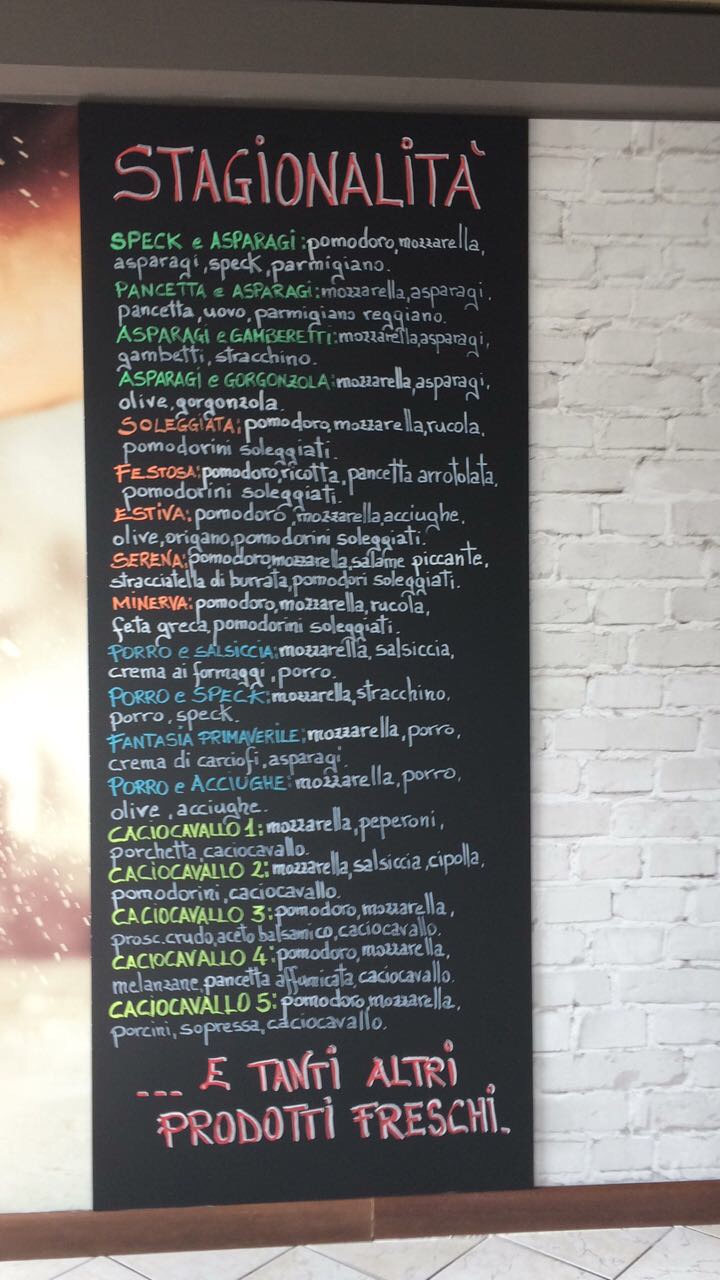 STAGIONALITÀ
SPECK e ASPARAGI: pomodoro, mozzarella,
asparagi, speck, parmigiano.
PANCETTA e ASPARAGI: mozzarella, asparagi,
pancetta, uovo, parmigiano reggiano.
ASPARAGI e GAMBERETTI: mozzarella, asparagi,
gambetti, stracchino.
ASPARAGI e GORGONZOLA: mozzarella, asparagi,
olive, gorgonzola.
SOLEGGIATA: pomodoro, mozzarella, rucola,
pomodorini soleggiati.
FESTOSA: pomodoro, ricotta, pancetta arrotolata,
pomodorini soleggiati.
ESTIVA: pomodoro, mozzarella, acciughe,
olive, origano, pomodorini soleggiati.
SERENA: pomodoro, mozzarella, salame piccante,
stracciatella di burrata, pomodori soleggiati.
MINERVA: pomodoro, mozzarella, rucola,
feta greca, pomodorini soleggiati.
PORRO e SALSICCIA: mozzarella, salsiccia,
crema ai formaggi, porro.
PORRO e SPECK: mozzarella, stracchino,
porro, speck.
FANTASIA PRIMAVERILE: mozzarella, porro,
crema di carciofi, asparagi.
PORRO e ACCIUGHE: mozzarella, porro,
olive, acciughe.
CACIOCAVALLO 1: mozzarella, peperoni,
porchetta, caciocavallo.
CACIOCAVALLO 2: mozzarella, salsiccia, cipolla,
pomodorini, caciocavallo.
CACIOCAVALLO 3: pomodoro, mozzarella,
prosc. crudo, aceto balsamico, caciocavallo.
CACIOCAVALLO 4: pomodoro, mozzarella,
melanzane, pancetta affumicata, caciocavallo.
CACIOCAVALLO 5: pomodoro, mozzarella,
porcini, sopressa, caciocavallo.
... E TANTI ALTRI
PRODOTTI FRESCHI.